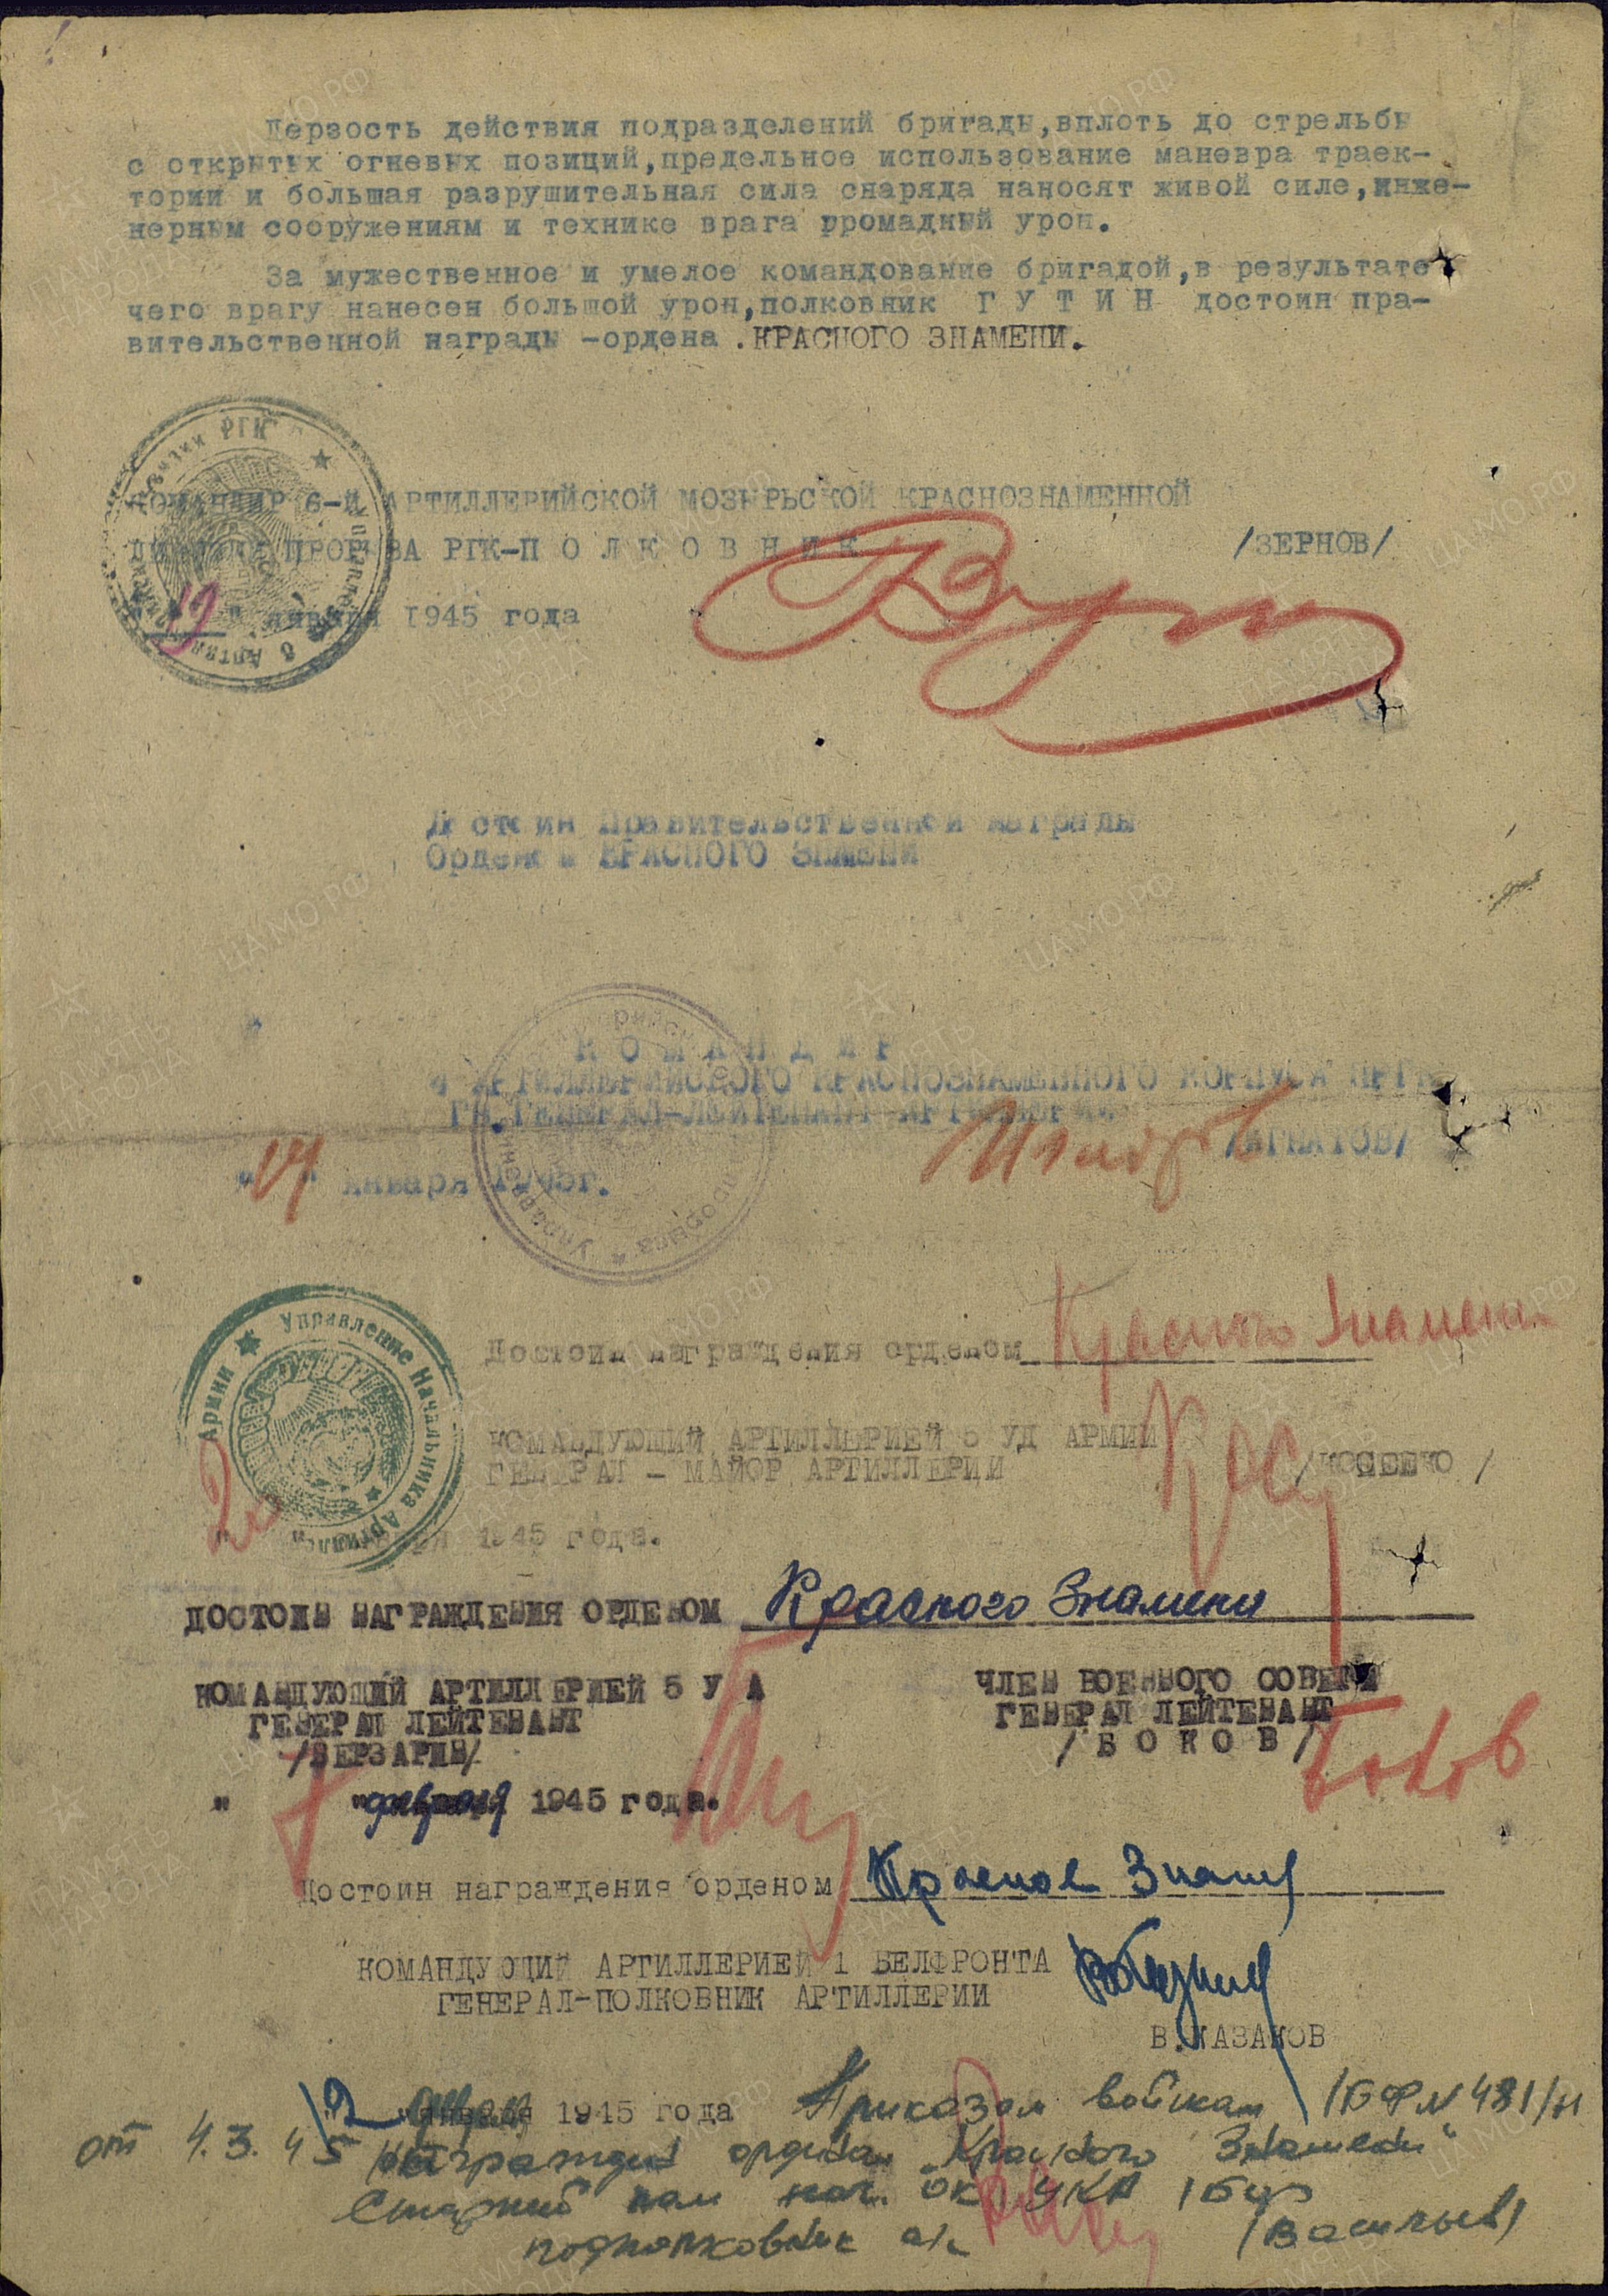 Дерзость действия подразделений бригады,вплоть до стрельбы
с открытых огневых позиций,предельное использование маневра траек-
тории и большая разрушительная сила снаряда наносят живой силе,инже-
нерным сооружениям и технике врага рромадный урон.
За мужественное и умелое командование бригадой,в результате
чего врагу нанесен большой урон,полковник Г У Т И Н достоин пра-
вительственной награды -ордена .КРАСНОГО ЗНАМЕНИ.
КОМАНДИР 6-й АРТИЛЛЕРИЙСКОЙ МОЗЫРЬСКОЙ КРАСНОЗНАМЕННОЙ
ДИВИЗИИ ПРОРЫВА РГК-П О Л К О В Н И К /ЗЕРНОВ/
января 1945 года
Достоин Правительственной награды
Ордена КРАСНОГО ЗНАМЕНИ
К О М А Н Д И Р
4 АРТИЛЛЕРИЙСКОГО КРАСНОЗНАМЕННОГО КОРПУСА ПРГК
ГВ.ГЕНЕРАЛ-ЛЕЙТЕНАНТ АРТИЛЛЕРИИ
/ИГНАТОВ/
января 1945г.
Управление Начальника Артил. Армии
Достоин награждения орденом Красного Знамени
КОМАНДУЮЩИЙ АРТИЛЛЕРИЕЙ 5 УД АРМИИ
ГЕНЕРАЛ - МАЙОР АРТИЛЛЕРИИ /КОСЕНКО /
1945 года.
ДОСТОИН НАГРАЖДЕНИЯ ОРДЕНОМ Красного Знамени
КОМАНДУЮЩИЙ АРТИЛЛЕРИЕЙ 5 У А ЧЛЕН ВОЕННОГО СОВЕТА
ГЕНЕРАЛ ЛЕЙТЕНАНТ ГЕНЕРАЛ ЛЕЙТЕНАНТ
/БЕРЗАРИН/ / Б О К О В / Боков
" " февраля 1945 года.
Достоин награждения орденом Красное Знамя
КОМАНДУЮЩИЙ АРТИЛЛЕРИЕЙ 1 БЕЛФРОНТА
ГЕНЕРАЛ-ПОЛКОВНИК АРТИЛЛЕРИИ
В.КАЗАКОВ
1945 года Приказом войскам 1БФ № 481/н
от 4.3.45 награжден орденом "Красного Знамени"
Старший пом нач. ОК УКА 1БФ
подполковник а/с /Васильев/